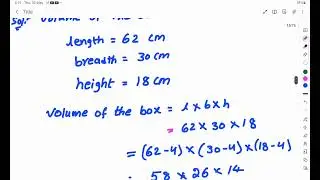 Title
Sol. Volume of the
length = 62 cm
breadth = 30 cm
height = 18 cm
Volume of the box = l × b × h
= 62 × 30 × 18
= (62-4) × (30-4) × (18-4)
= 58 × 26 × 14